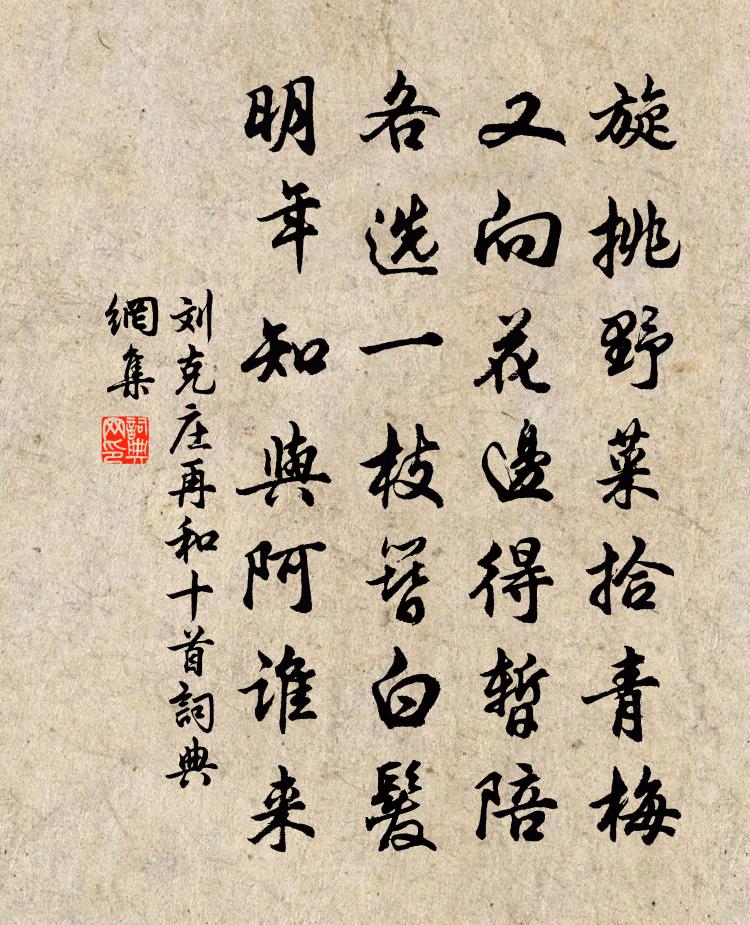 旋挑野菜拾青梅
又向花邊得暫陪
各选一枝簪白髮
明年知與阿谁来
刘克庄再和十首詞典
網集
詞典
网印